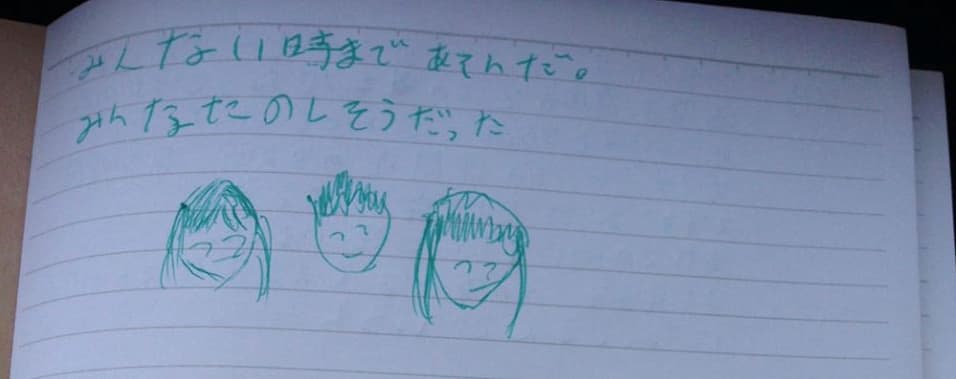 みんな11時まであそんだ。
みんなたのしそうだった